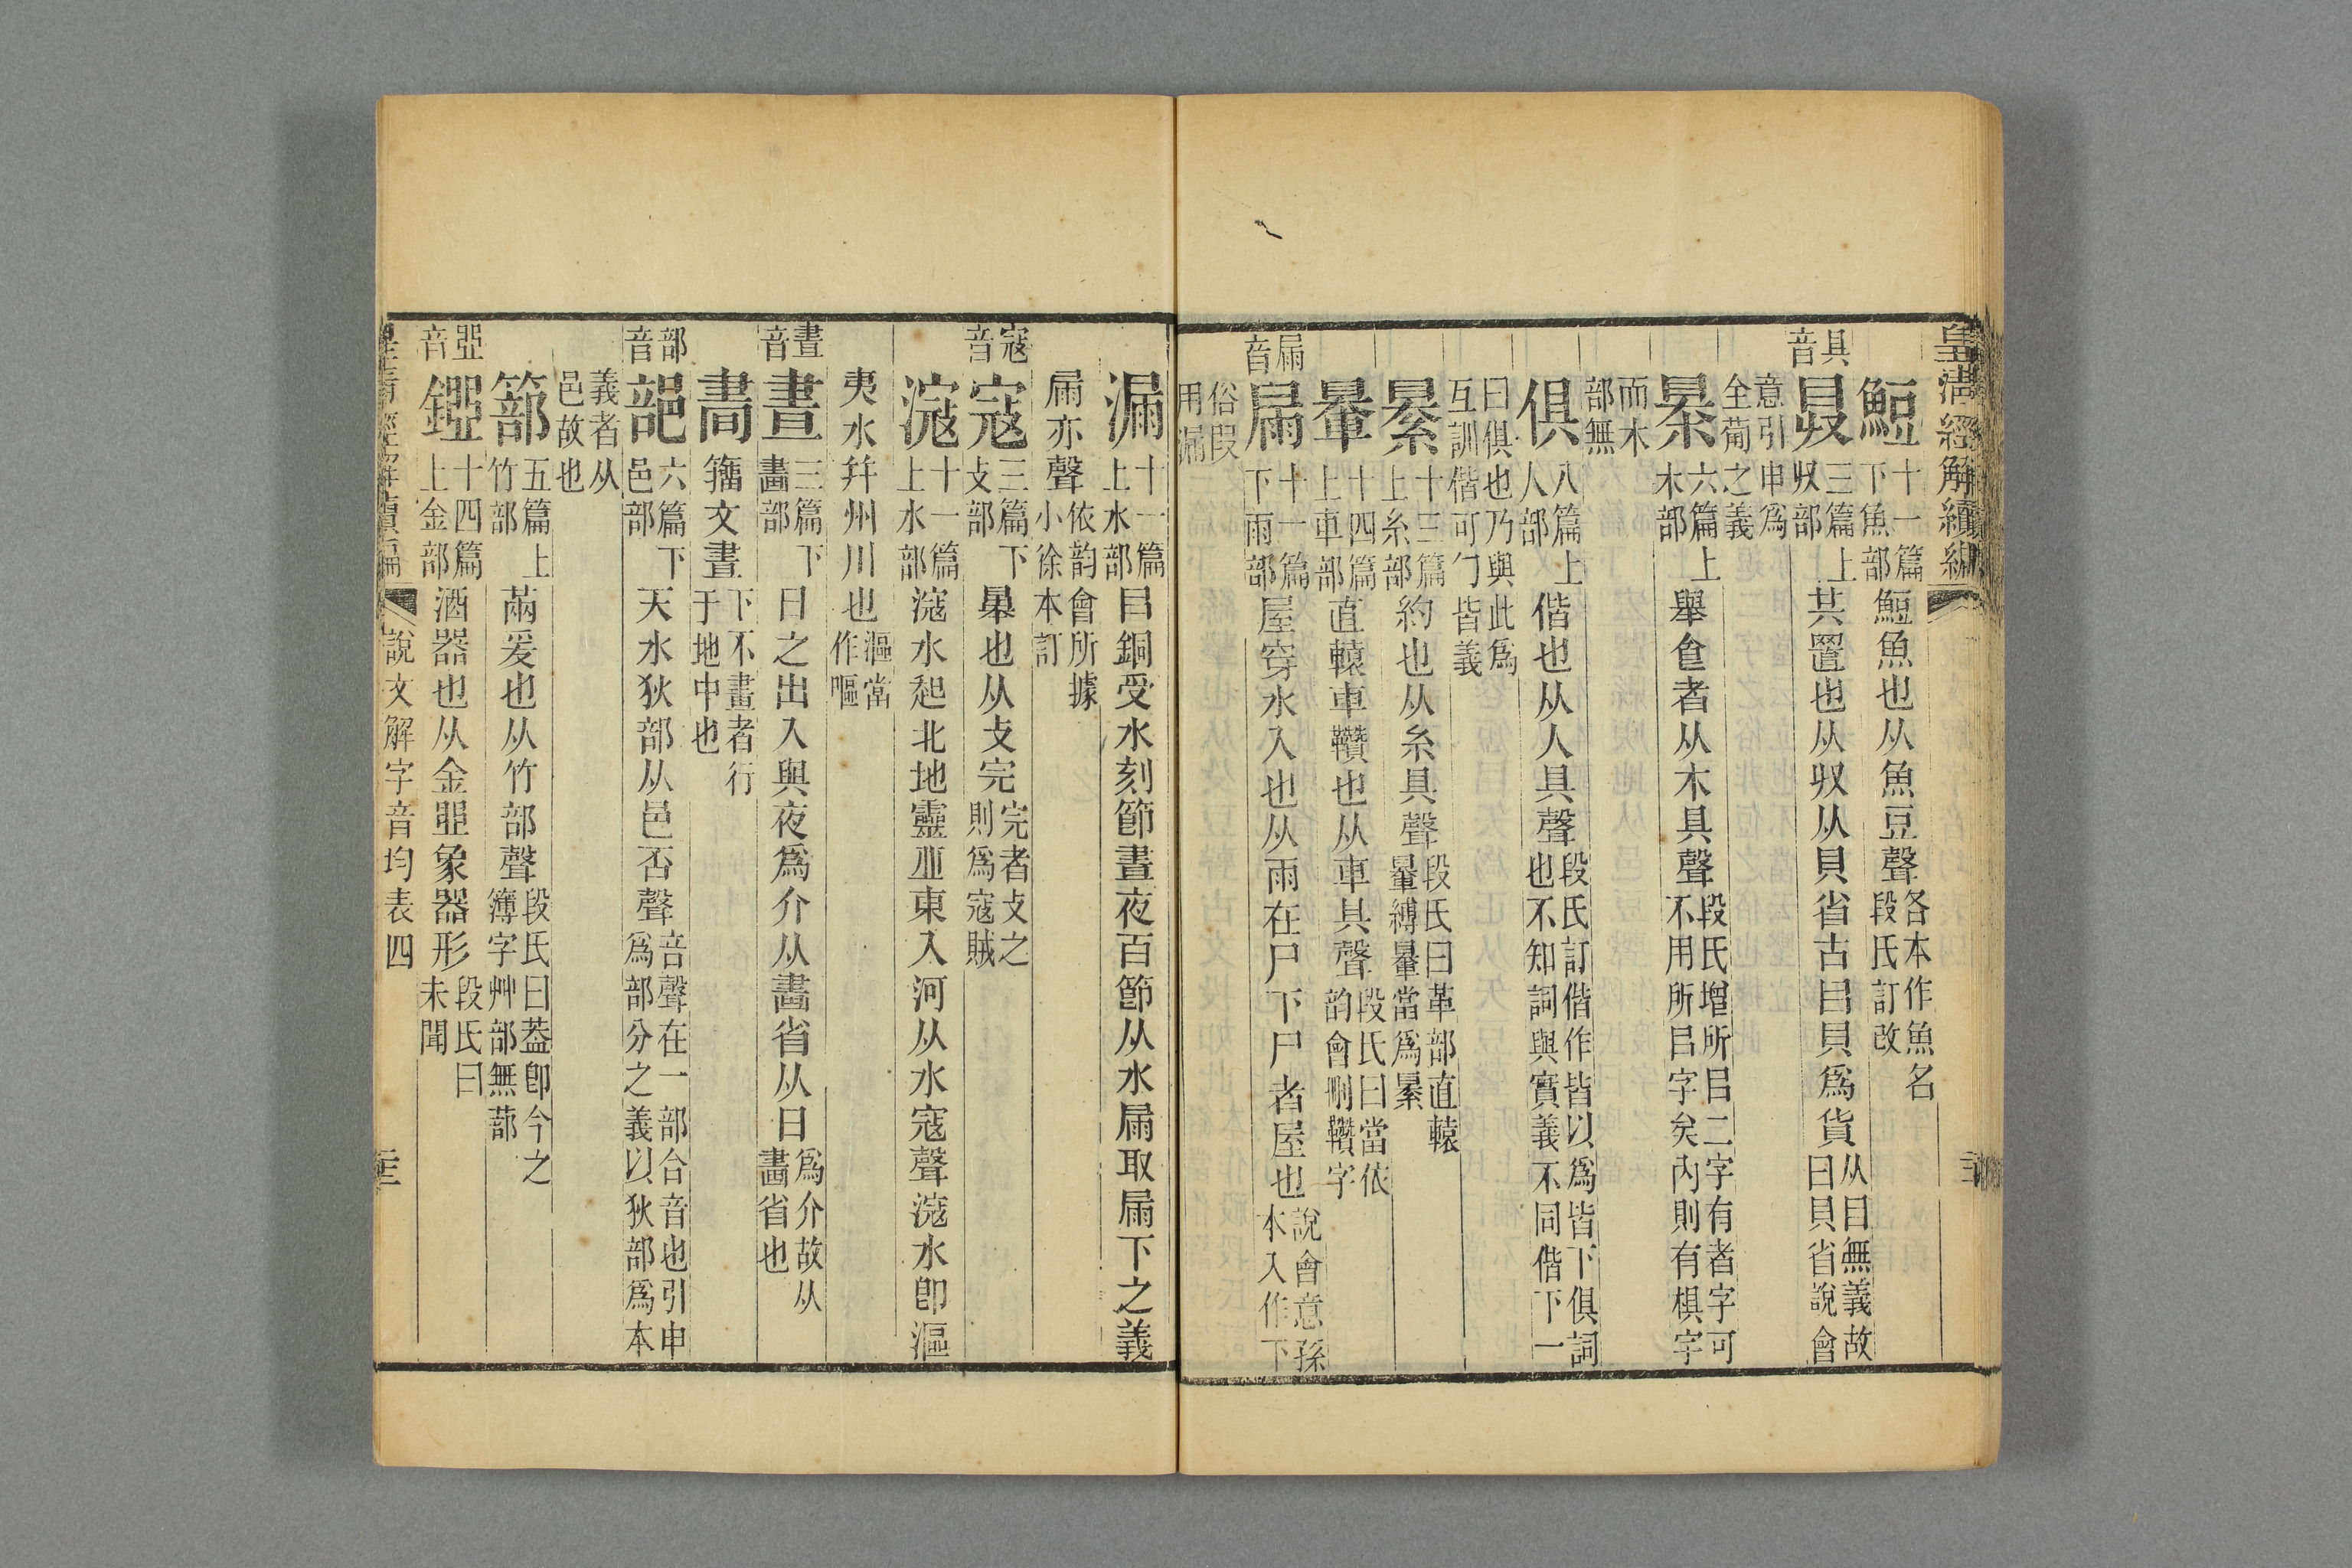 皇淸經解續編
鯹十一篇下魚部䱏魚也从魚豆聲各本作魚名段氏訂改
具音
具三篇上収部共置也从収从貝省古㠯貝爲貨从目無義故曰貝省說會
意引申爲全葡之義
暴六篇上木部舉𠊊者从木具聲段氏增所㠯二字有者字可不用所㠯字矣內則有椇字
而木部無
俱八篇上人部偕也从人具聲段氏訂偕作皆以爲皆下俱詞也不知詞與實義不同偕下一
曰俱也乃與此爲互訓偕可勹皆義
䋰十三篇上糸部約也从糸具聲段氏曰革部直轅暈縛暈當爲䋰
暈十四篇上車部直轅車鞼也从車具聲段氏曰當依韵會刪鞼字
屚音
屚十一篇下雨部屋穿水入也从雨在尸下尸者屋也說會意孫本入作下
俗叚用漏
漏十一篇上水部㠯銅受水刻節晝夜百節从水屚取屚下之義
屚亦聲依韵會所據小徐本訂
寇音
寇三篇下攴部㬥也从攴完完者攴之則爲寇賊
滱十一篇上水部滱水起北地靈丘東入河从水寇聲滱水卽漚
夷水幷州川也漚當作嘔
晝音
晝三篇下畫部日之出入與夜爲介从畫省从日爲介故从畫省也
𦘚籒文晝下不畫者行于地中也
部音
部六篇下邑部天水狄部从邑否聲音聲在一部合音也引申爲部分之義以狄部爲本
義者从邑故也
篰五篇上竹部䇺爰也从竹部聲段氏曰葢卽今之簿字艸部無蔀
䀇音
鋀十四篇上金部酒器也从金䀇象器形段氏曰未聞
說文解字音均表四